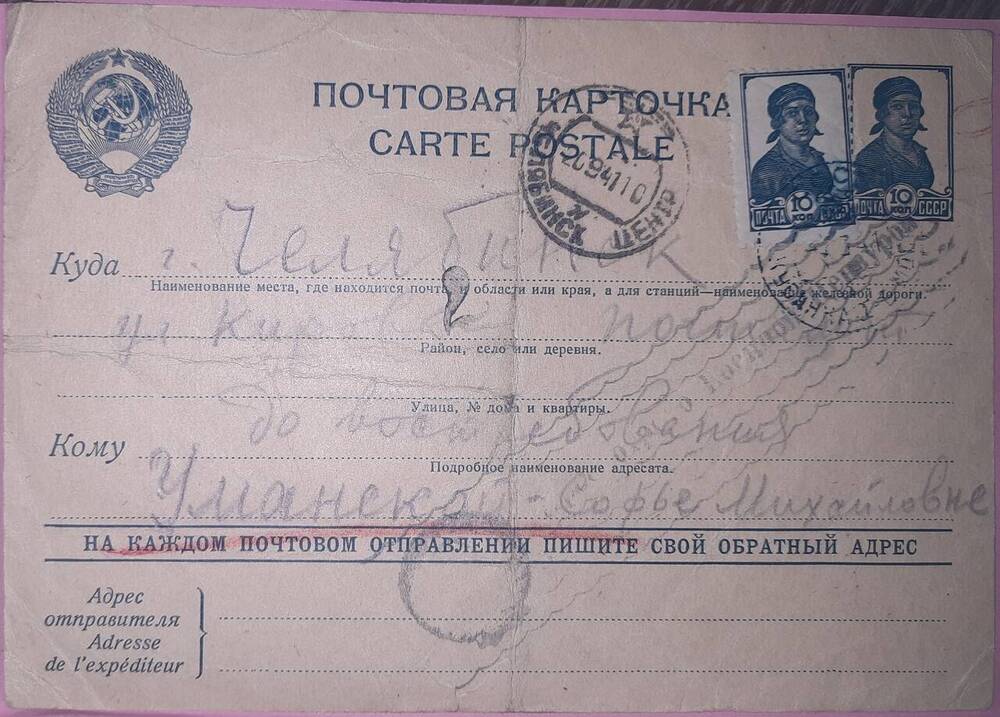 ПОЧТОВАЯ КАРТОЧКА
CARTE POSTALE
Куда г. Челябинск
Наименование места, где находится почта, и области или края, а для станций—наименование железной дороги.
ул
Район, село или деревня.
до востребования
Улица, № дома и квартиры.
Кому Уманской Софье Михайловне
Подробное наименование адресата.
НА КАЖДОМ ПОЧТОВОМ ОТПРАВЛЕНИИ ПИШИТЕ СВОЙ ОБРАТНЫЙ АДРЕС
Адрес
отправителя
Adresse
de l'expéditeur
ЧЕЛЯБИНСК
ЦЕНТР
ПОЧТА
10 КОП.
СССР
ПОЧТА
10 КОП.
СССР